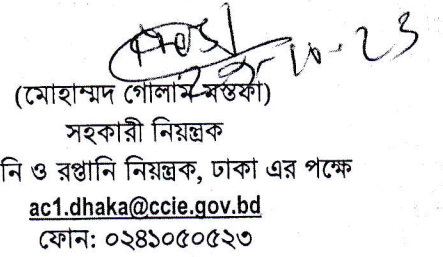 ২৫-১০-২৩
(মোহাম্মদ গোলাম মস্তফা)
সহকারী নিয়ন্ত্রক
নি ও রপ্তানি নিয়ন্ত্রক, ঢাকা এর পক্ষে
ac1.dhaka@ccie.gov.bd
ফোন: ০২৪১০৫০৫২৩